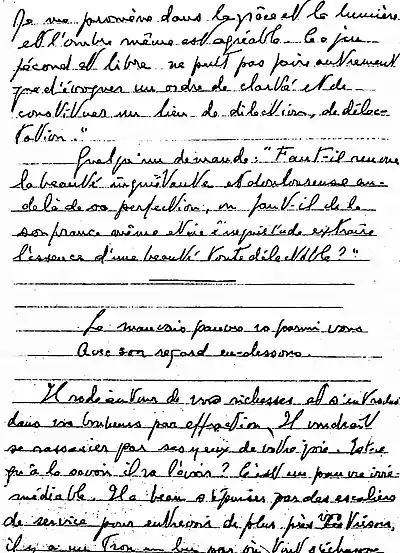 Je me promène dans la grâce et la lumière
et l'ombre même est agréable. Ce jeu
fécond et libre ne peut pas faire autrement
que d'évoquer un ordre de clarté et de
constituer un lieu de dilection, de délec-
tation."
Quelqu'un demande: "Faut-il
la beauté inquiétante et douloureuse au-
delà de sa perfection, ou faut-il de la
souffrance même et de l'inquiétude extraire
l'essence d'une beauté toute délectable?"
Le mauvais pauvre va parmi vous
Avec son regard en-dessous.
Il rode autour de vos richesses et s'introduit
dans vos bonheurs par effraction. Il voudrait
se rassasier par ses yeux de votre joie. Est-ce
qu'à la savoir il va l'avoir? C'est un pauvre irré-
médiable. Il a beau s'épuiser par des escaliers
de service pour entrevoir de plus près les trésors,
il y a un trou en lui par où tout s'échappe